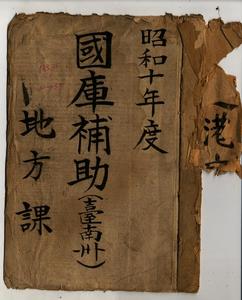 昭和十年度
國庫補助(臺南州)
地方課
港